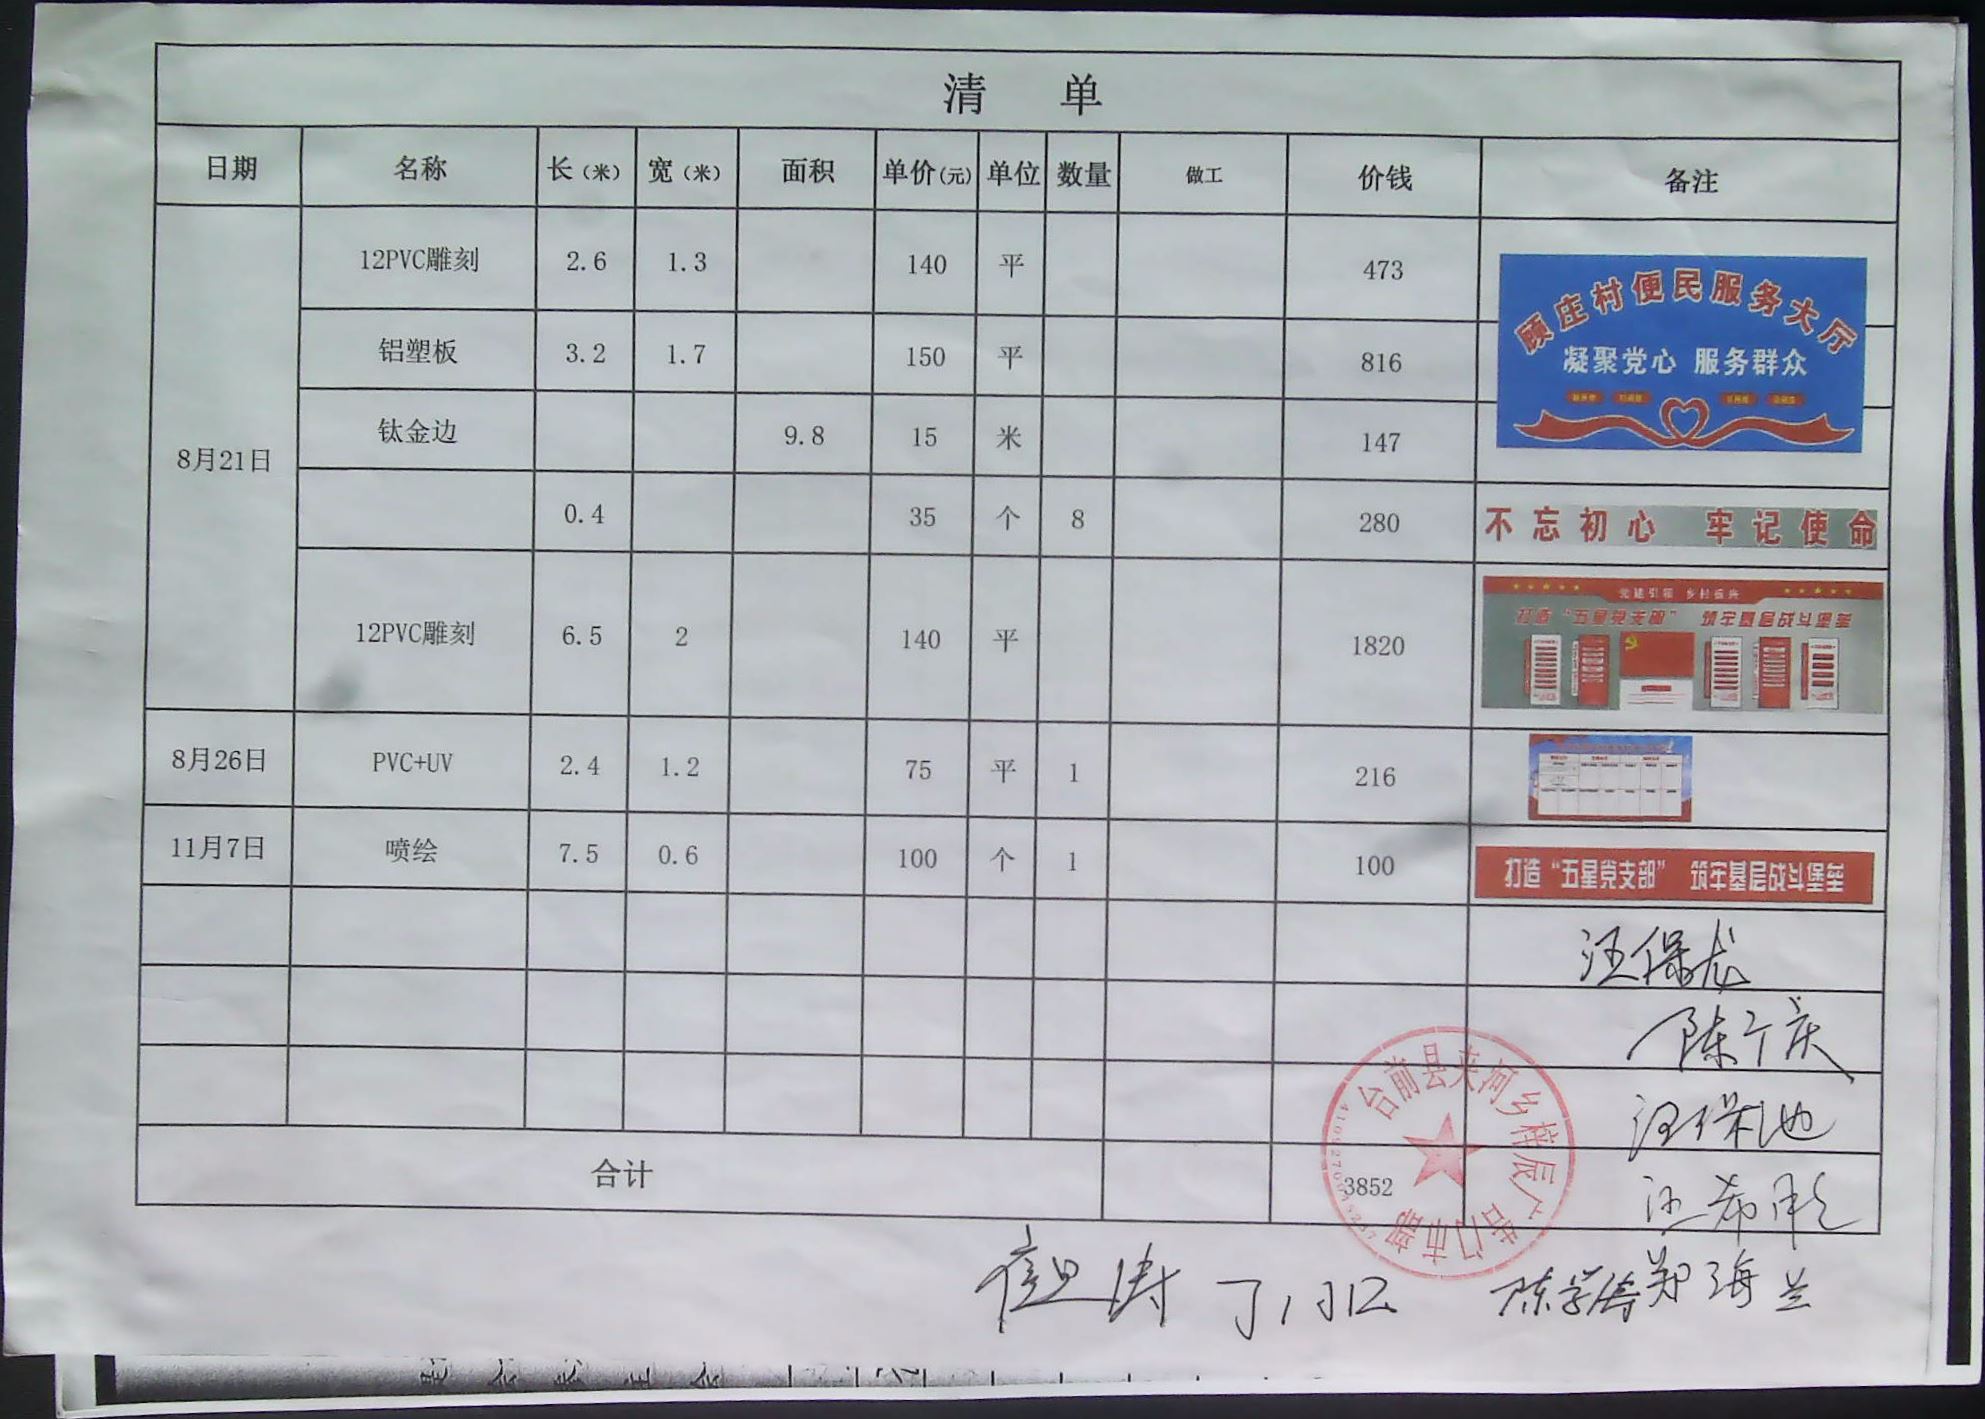 清 单
日期 名称 长（米） 宽（米） 面积 单价(元) 单位 数量 做工 价钱 备注
8月21日
12PVC雕刻 2.6 1.3 140 平 473
铝塑板 3.2 1.7 150 平 816
钛金边 9.8 15 米 147
顾庄村便民服务大厅
凝聚党心 服务群众
0.4 35 个 8 280
不忘初心 牢记使命
12PVC雕刻 6.5 2 140 平 1820
党建引领 乡村振兴
打造“五星党支部” 筑牢基层战斗堡垒
8月26日 PVC+UV 2.4 1.2 75 平 1 216
11月7日 喷绘 7.5 0.6 100 个 1 100
打造“五星党支部” 筑牢基层战斗堡垒
汪保龙
汪保池
合计 3852
台前县夹河乡梓辰广告门市部
陈学涛 郑海兰